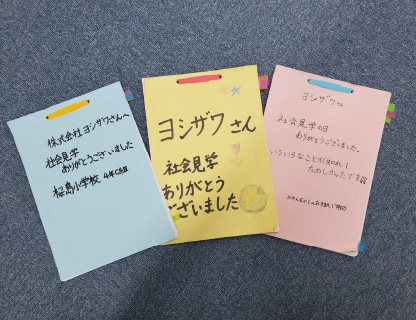 株式会社 ヨシザワさんへ
社会見学
ありがとうございました
桜島小学校 4年
ヨシザワさん
社会見学
ありがとう
ございました
ヨシザワ
社会見学の日
ありがとうございました。
いろいろなことが知れて
たのしかったです